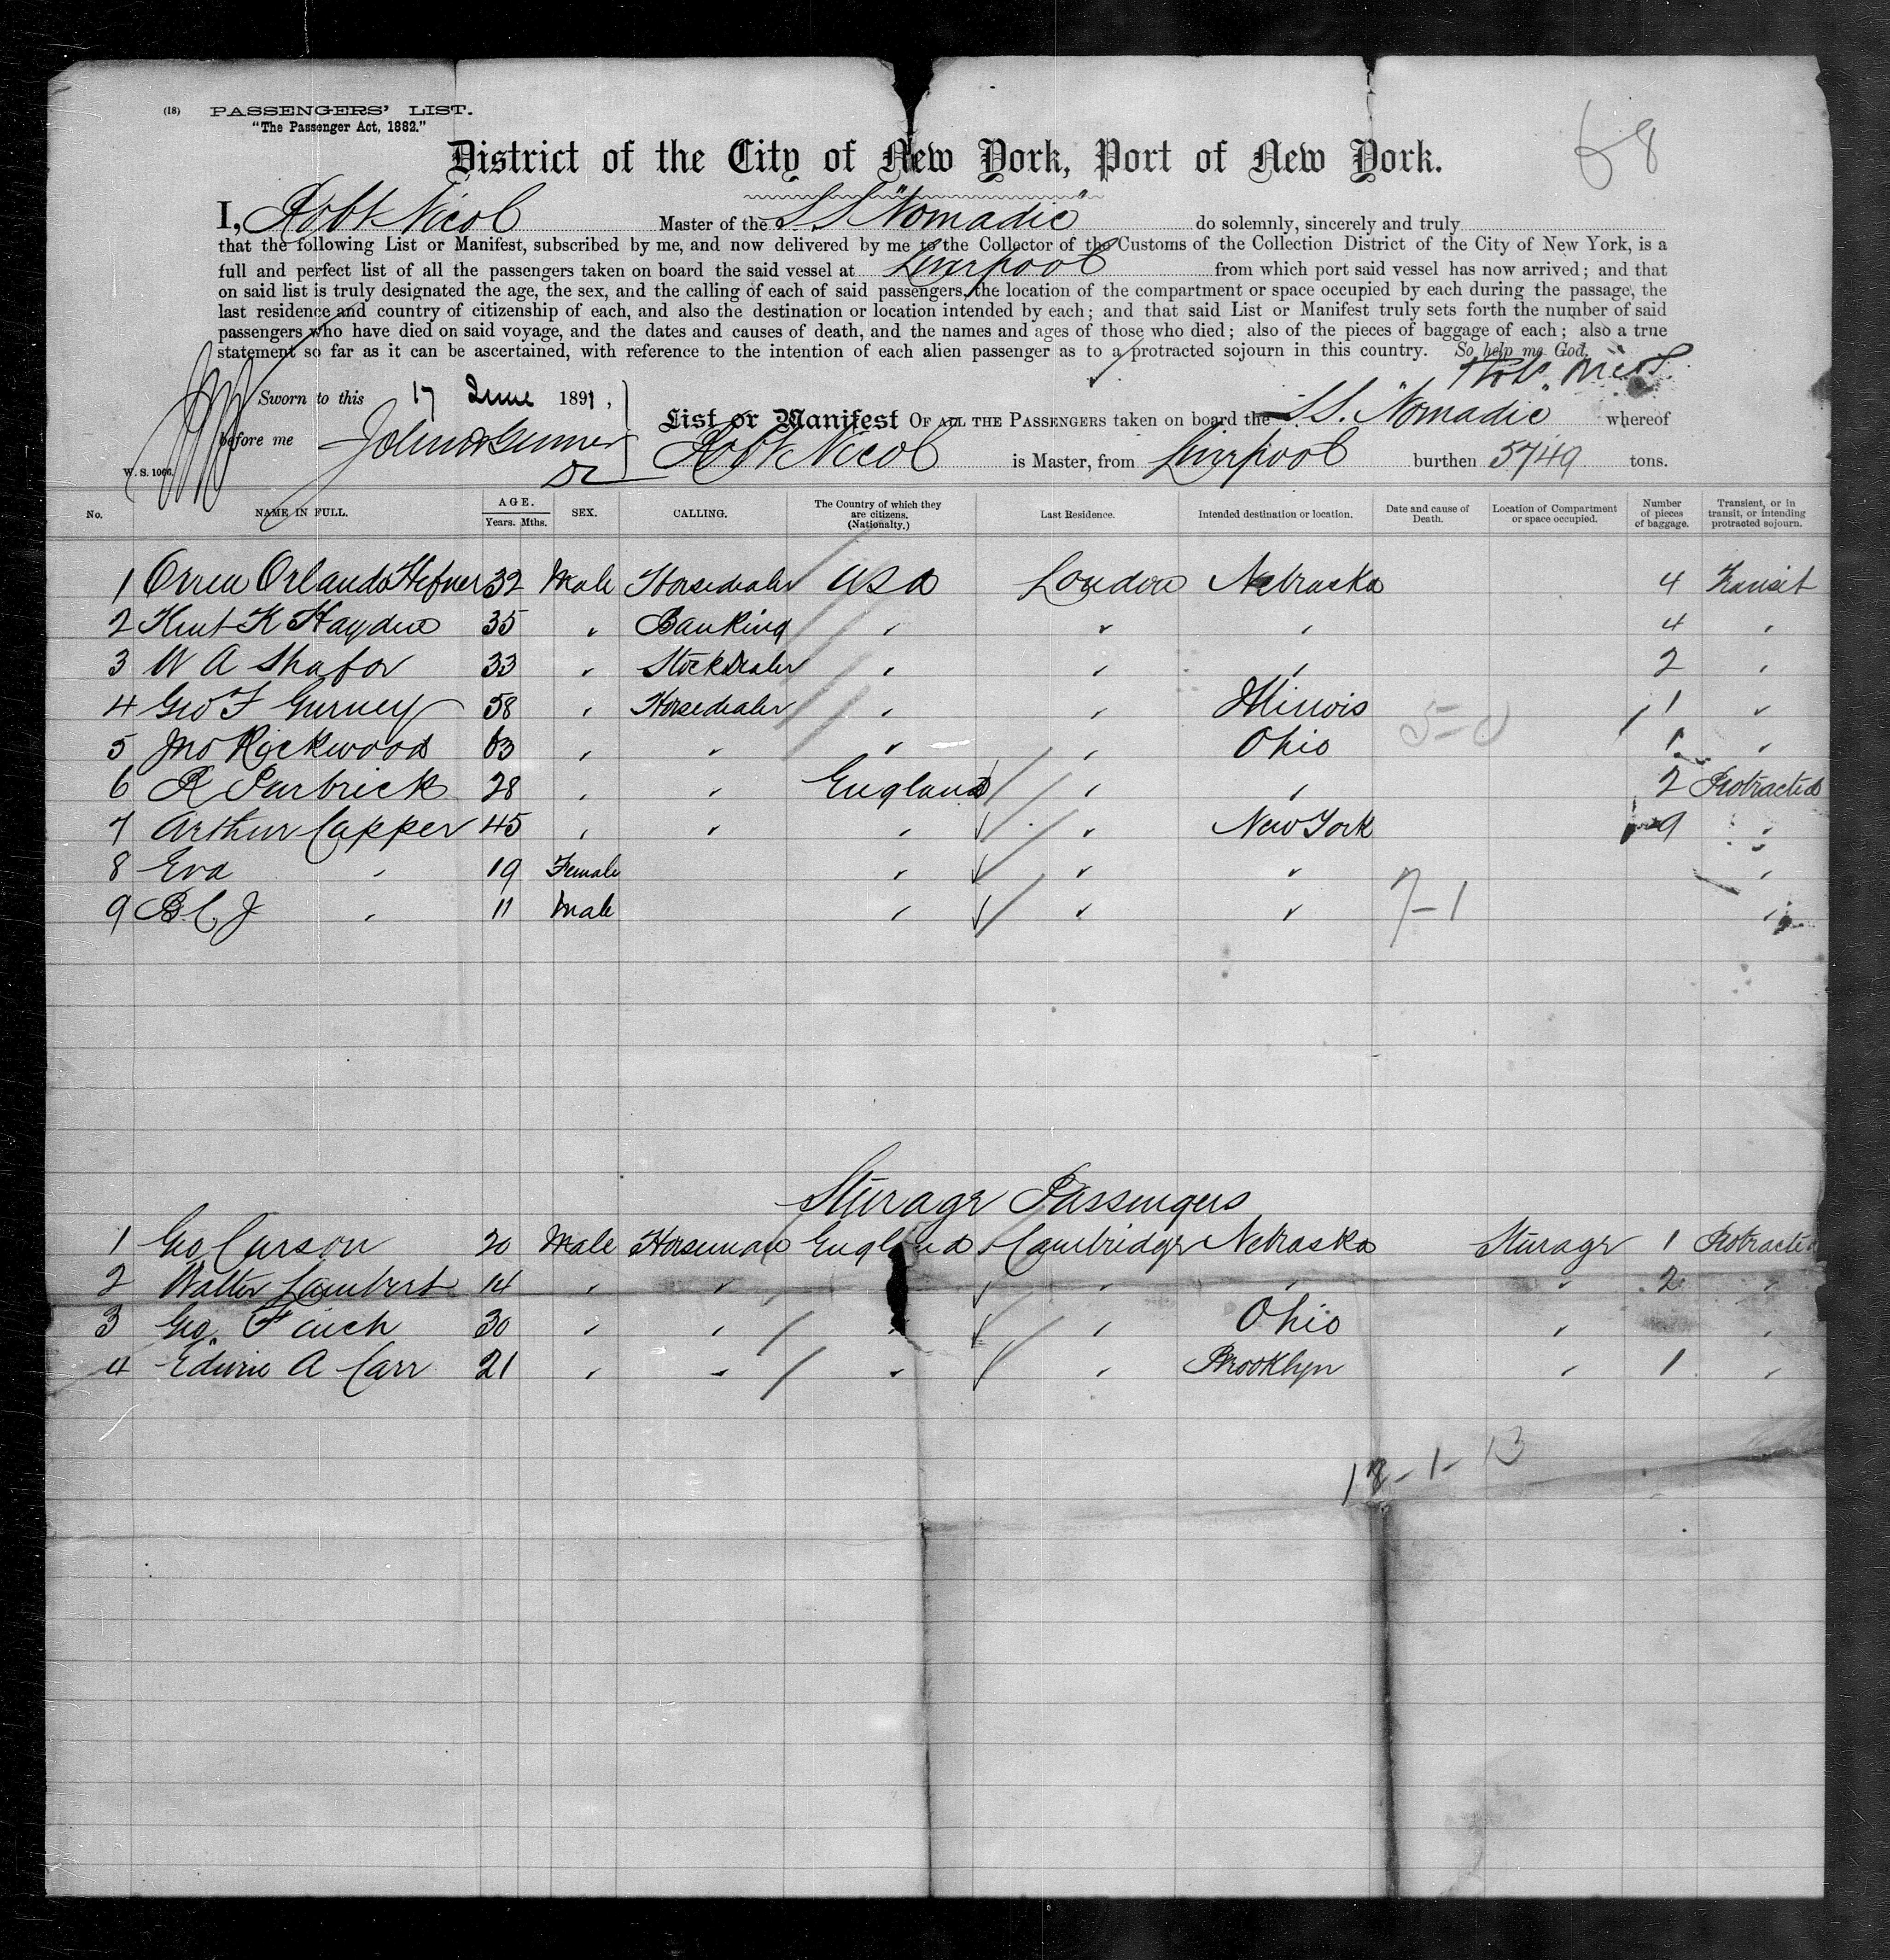 (18) PASSENGERS' LIST.
"The Passenger Act, 1882."
68
District of the City of New York, Port of New York.
I, Robt Nicol Master of the S.S. "Nomadic" do solemnly, sincerely and truly
that the following List or Manifest, subscribed by me, and now delivered by me to the Collector of the Customs of the Collection District of the City of New York, is a
full and perfect list of all the passengers taken on board the said vessel at Liverpool from which port said vessel has now arrived; and that
on said list is truly designated the age, the sex, and the calling of each of said passengers, the location of the compartment or space occupied by each during the passage, the
last residence and country of citizenship of each, and also the destination or location intended by each; and that said List or Manifest truly sets forth the number of said
passengers who have died on said voyage, and the dates and causes of death, and the names and ages of those who died; also of the pieces of baggage of each; also a true
statement so far as it can be ascertained, with reference to the intention of each alien passenger as to a protracted sojourn in this country. So help me God.
Robt Nicol
Sworn to this 17 June 1891,
before me
List or Manifest OF ALL THE PASSENGERS taken on board the S.S. "Nomadic" whereof
Robt Nicol is Master, from Liverpool burthen 5749 tons.
W. S. 1066.
No. NAME IN FULL. AGE. Years. Mths. SEX. CALLING. The Country of which they are citizens. (Nationalty.) Last Residence. Intended destination or location. Date and cause of Death. Location of Compartment or space occupied. Number of pieces of baggage. Transient, or in transit, or intending protracted sojourn.
1 Orren Orlando Hefner 32 Male Horsedealer USA London Nebraska 4 Transit
2 Kent K Hayden 35 " Banking " " " 4 "
3 W A Shafor 33 " Stockdealer " " " 2 "
4 Geo F Gurney 58 " Horsedealer " " Illinois 1 "
5-0
5 Jno Rockwood 63 " " " " Ohio 1 "
6 R Purbrick 28 " " England " " 2 Protracted
7 Arthur Capper 45 " " " " New York 9 "
8 Eva " 19 Female " " " "
9 B.C.J " 11 Male " " " "
7-1
Sturage Passengers
1 Geo Curson 20 Male Horseman England Cambridge Nebraska Sturage 1 Protracted
2 Walter Lambert 14 " " " " " 2 "
3 Geo. Finch 30 " " " " Ohio " "
4 Edwin A Carr 21 " " " " Brooklyn " 1 "
12-1-13